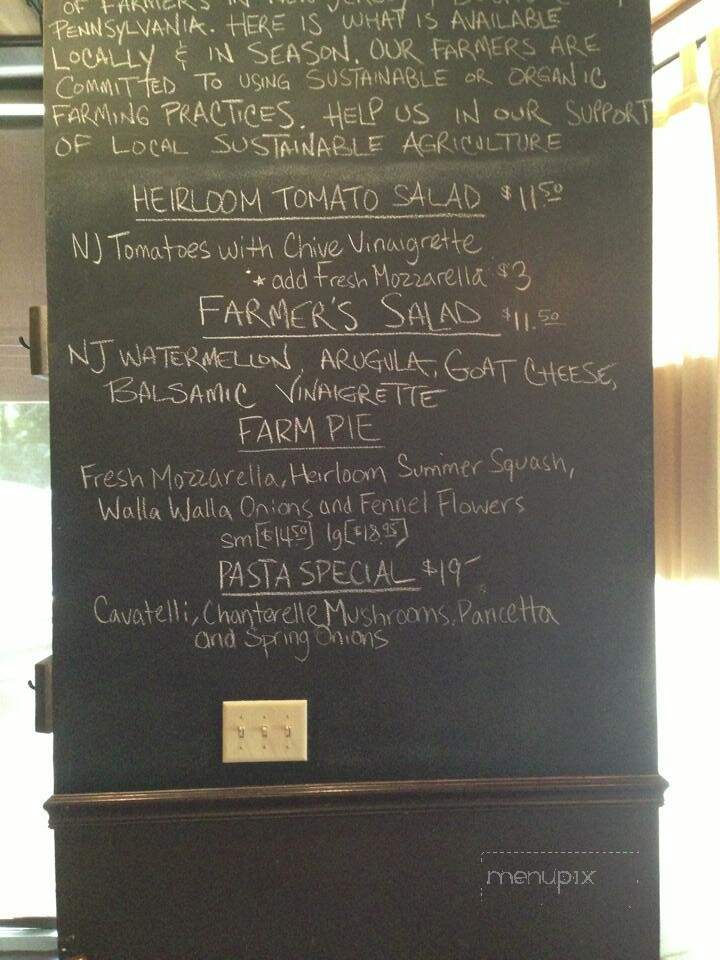 OF FARMERS IN NEW JERSEY
PENNSYLVANIA. HERE IS WHAT IS AVAILABLE
LOCALLY & IN SEASON. OUR FARMERS ARE
COMMITTED TO USING SUSTAINABLE OR ORGANIC
FARMING PRACTICES. HELP US IN OUR SUPPORT
OF LOCAL SUSTAINABLE AGRICULTURE
HEIRLOOM TOMATO SALAD $11.50
NJ Tomatoes with Chive Vinaigrette
* add Fresh Mozzarella $3
FARMER'S SALAD $11.50
NJ WATERMELLON, ARUGULA, GOAT CHEESE,
BALSAMIC VINAIGRETTE
FARM PIE
Fresh Mozzarella, Heirloom Summer Squash,
Walla Walla Onions and Fennel Flowers
sm[$14.50] lg[$18.95]
PASTA SPECIAL $19-
Cavatelli, Chanterelle Mushrooms, Pancetta
and Spring Onions
menupix